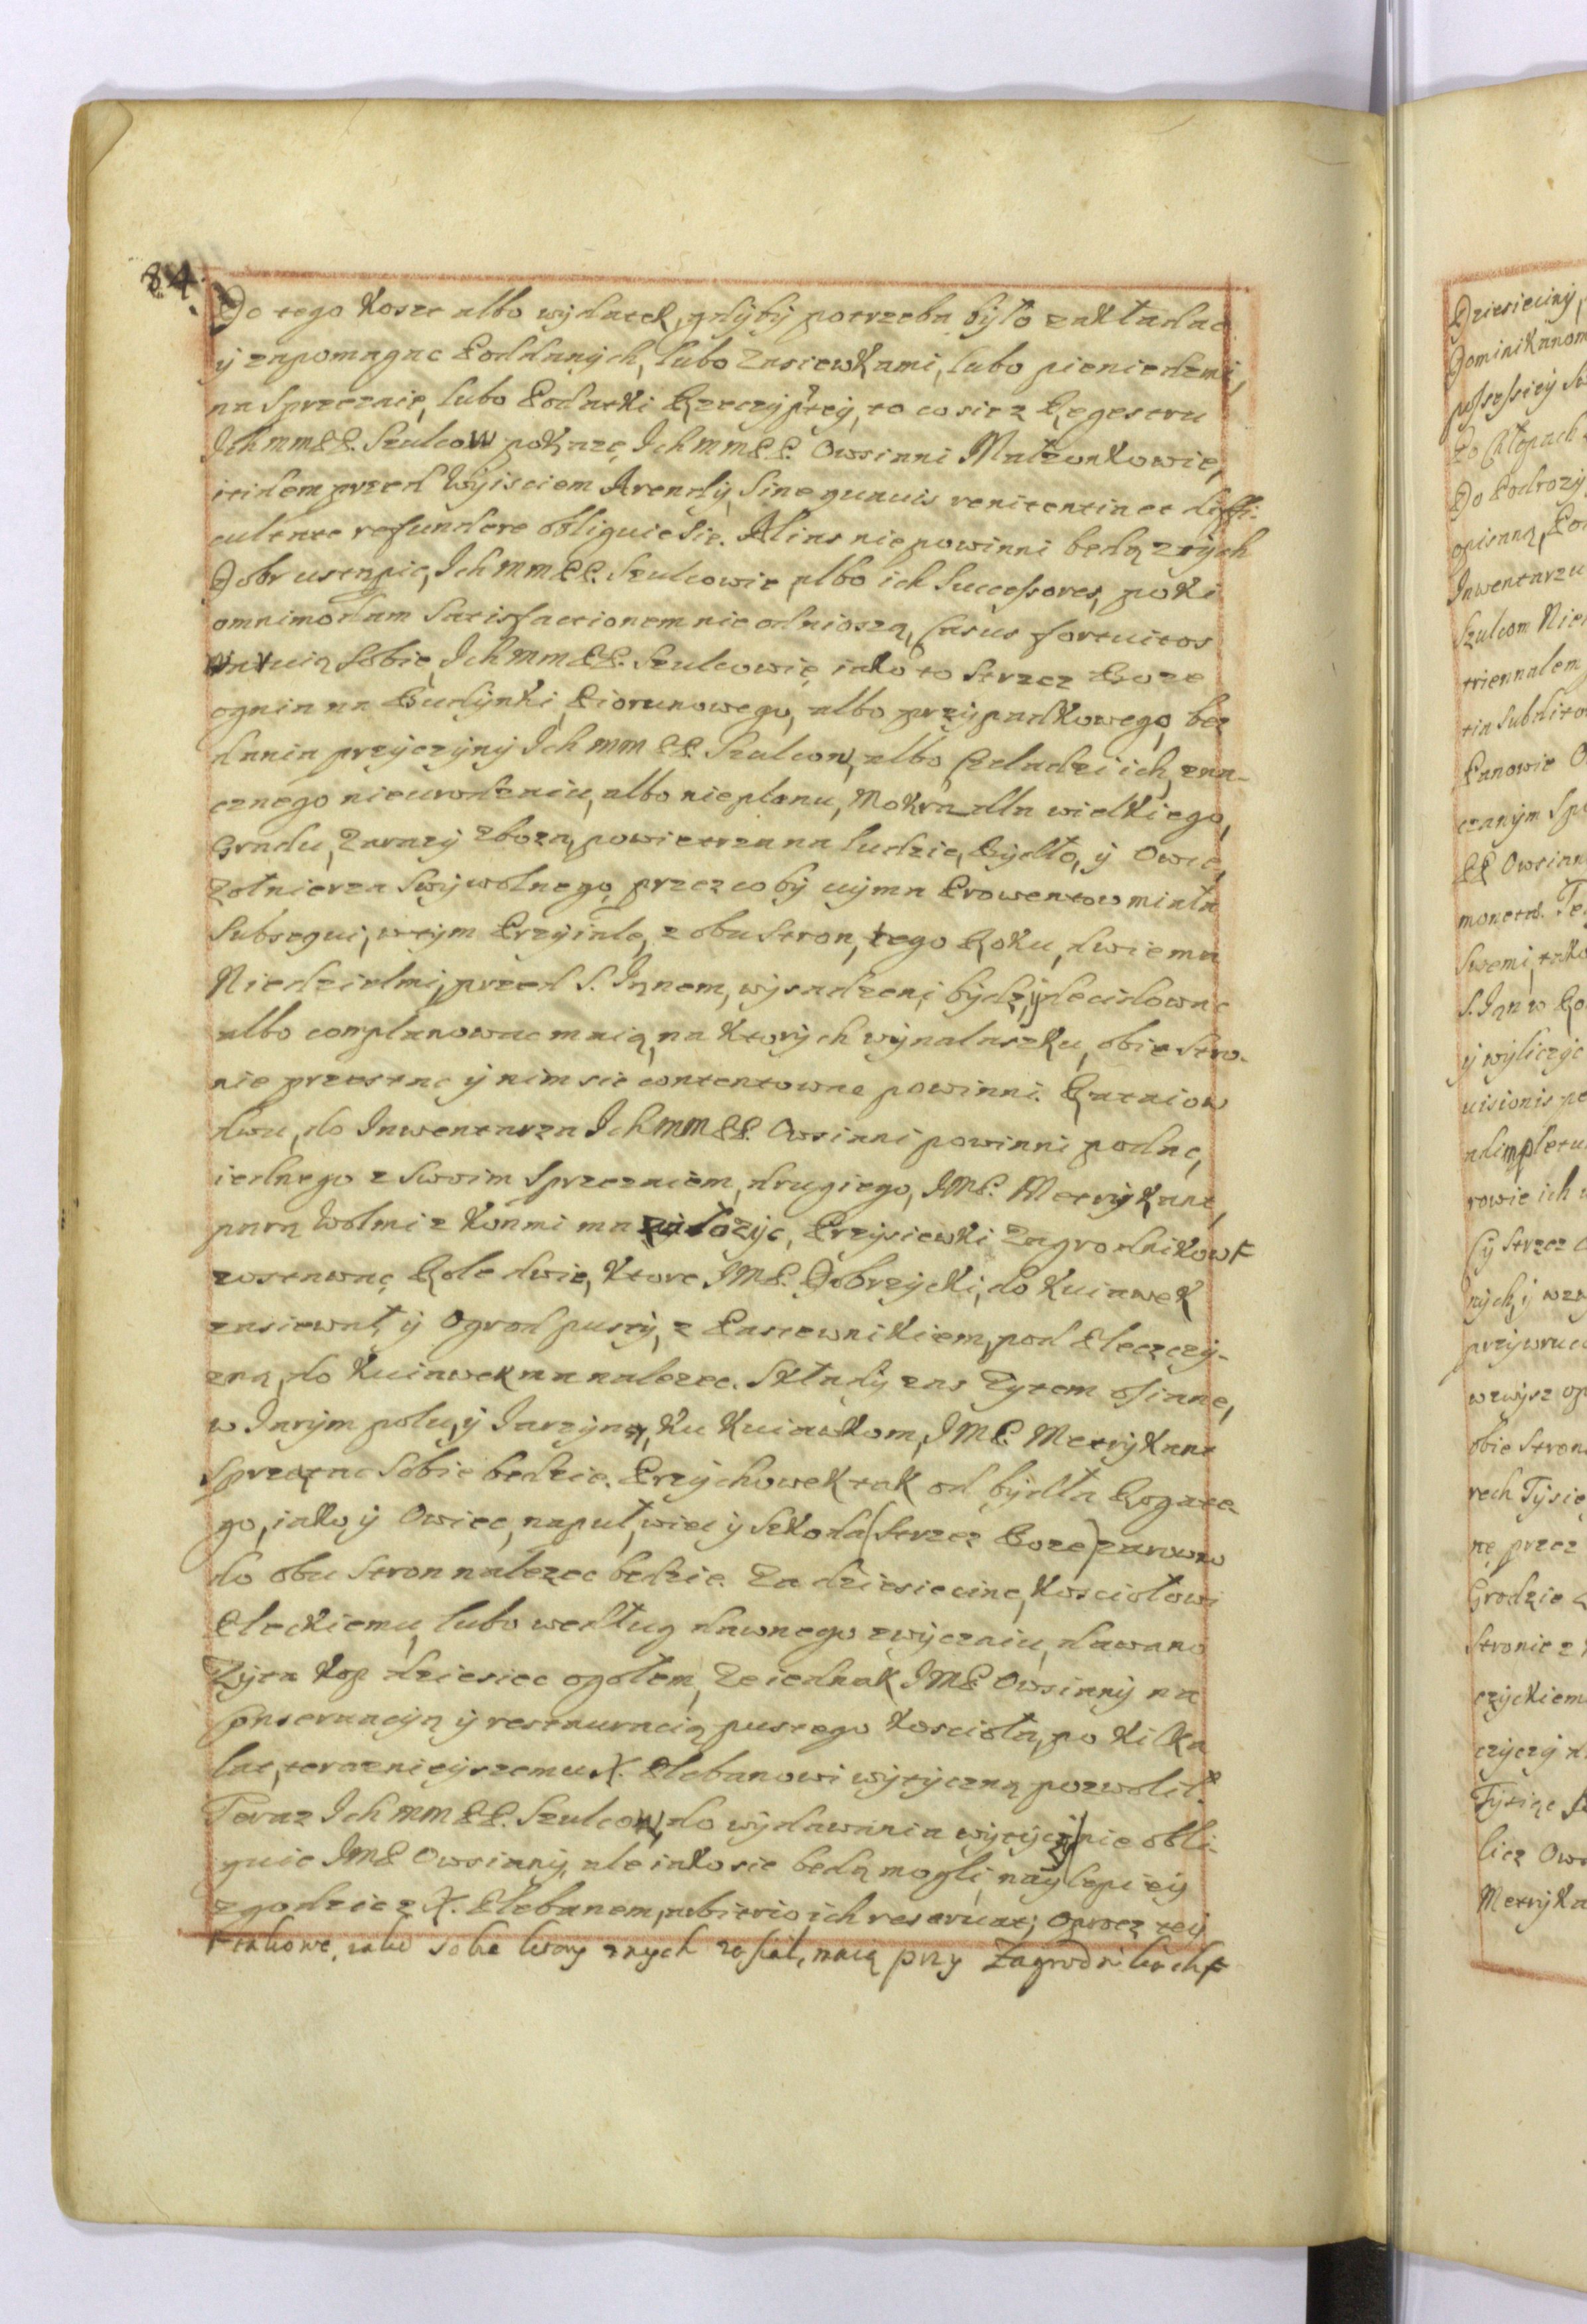 84.
Do tego Koszt albo wydatek, gdyby potrzeba było zakładac
y zapomagac Poddanych, lubo zasiewkami, lubo pieniedzmi,
na Sprzezaie, lubo Podatki Rzeczyptey, to co sie z Regestru
Ich mm PP. Szulcow pokaze, Ich mm PP. Owsianni Małzonkowie,
itidem przed Wyisciem Arendy, Sine quauis renitentia et diffi-
cultate refundere obliguie sie. Alias nie powinni będą z tych
Dobr ustąpic, Ich mm PP. Szulcowie, albo ich Successores, poki
omnimodam Satisfactionem nie odnioszą, Casus fortuitos
Sobie, Ich mm PP. Szulcowie, iako to Strzez Boze
ognia na Budynki, Piorunowego, albo przypadkowego, bez
dania przyczyny Ich mm PP. Szulcow, albo Czeladzi ich, zna-
cznego nieurodzaiu, albo nieplonu, Mokradla wielkiego,
Gradu, Zarazy zboza, powietrza na ludzie, Bydło, y Owce,
Zołnierza Swywolnego, przez co by uyma Prowentow miała
Subsequi, w tym Przyiale, z obu Stron, tego Roku, dwiema
Niedzielmi, przed S. Janem, wysadzeni bydz, y decidowac
albo complanowac maią, na ktorych wynalasku, obie Stro-
nie przestac y nim sie contentowac powinni. Rataiow
dwu, do Inwentarza Ich mm PP. Owsianni powinni podac,
iednego z swoim Sprzezaiem, drugiego, IMP. Metrykant,
parą Wolmi z Konmi ma załozyc, Przysiewki Zagrodnikow F
zostawac Role dwie, ktore IMP. Dobrzycki, do Kuiawek
zasiewał, y Ogrod pusty, z Pastewnikiem, pod Pleczczy-
zną, do Kuiawek ma nalezec. Składy zas Zytem osiane,
w Jarym polu, y Jarzyną, Ku Kuiawkom, IMP. Metrykant
Sprzątac Sobie bedzie. Przychowek tak od bydła Rogate
go, iako y Owiec, na puł, wiec y Szkoda (Strzez Boze) zarowno
do obu Stron nalezec bedzie. Za dziesiecine, Kosciołowi
Pleckiemu, lubo według dawnego zwyczaiu, dawano
Zyta Kop dziesiec ogołem, Ze iednak IMP Owsianny na
Conseruacyą y restauracią pustego Koscioła, po kilka
lat, teraznieyszemu X. Plebanowi wytyczną pozwolił.
Teraz Ich mm PP. Szulcow, do wydawania wytyczny nie obli-
guie IMP Owsianny, ale iako sie będą mogli, naylepiey
zgodzic z X. Plebanem, arbitrio ich reseruat; Oprocz tey
F
przy Zagrodnikach F
Dziesieciny,
Dominikanom
possessiey
To Chłopach
Do Podrozy
opisaną,
Inwentarzu
Szulcom
triennalem
Panowie
czanym
PP Owsian
S. Jan
y wyliczyc
uisionis
rowie ich
nych, y
wzwysz
obie Stron
rech Tysię
nę przez
Grodzie
Stronie z
czyckiem
Tysiąc
licz
Metryka